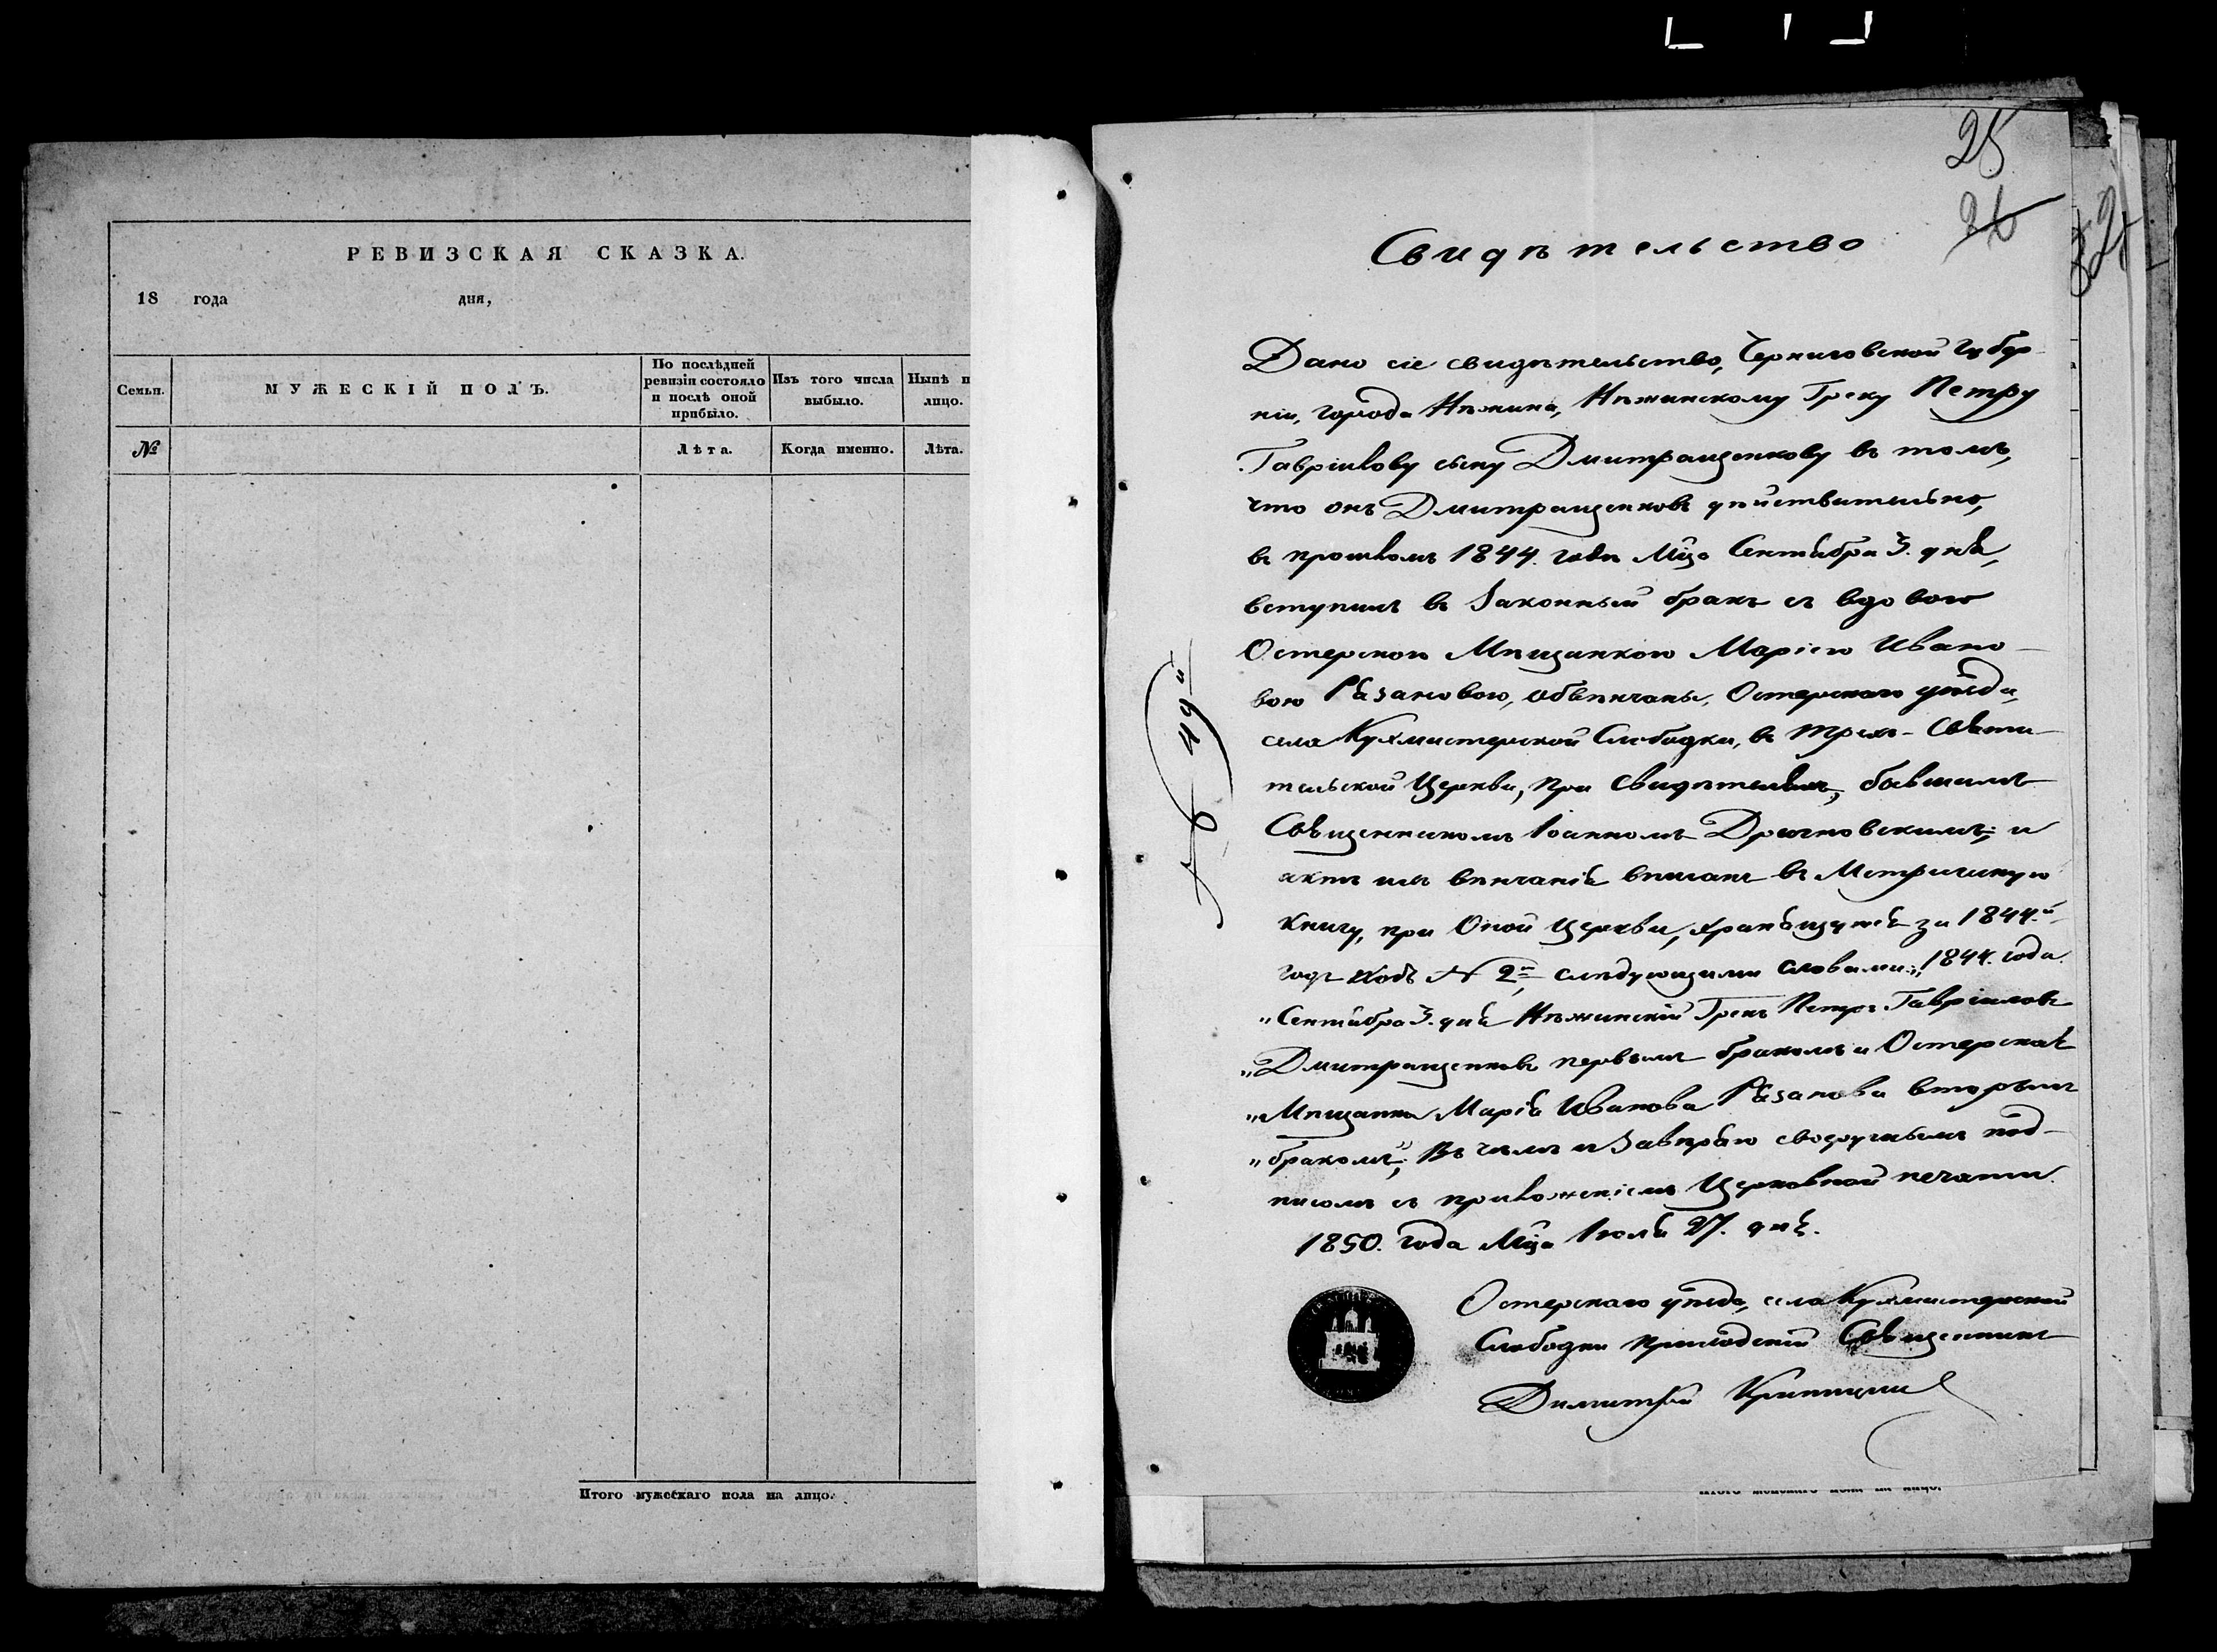 РЕВИЗСКАЯ СКАЗКА.
18 года дня,
Семьи.
МУЖЕСКІЙ ПОЛЪ.
По послѣдней
ревизіи состояло
и послѣ оной
прибыло.
Изъ того числа
выбыло.
Нынѣ н
лицо.
№
Лѣта.
Когда именно.
Лѣта.
Итого мужескаго пола на лицо.
25
26
Свидѣтельство
Дано сіе свидѣтельство, Черниговской Губер
ніи, города Нѣжина, Нѣжинскому Греку Петру
Гавріилову сыну Дмитращенкову въ томъ,
что онъ Дмитращенковъ дѣйствительно,
въ прошломъ 1844. годѣ Мца Сентября 3. дня,
вступилъ въ Законный бракъ съ вдовою
Остерскою Мѣщанкою Маріею Ивано-
вою Рязановою, обвѣнчаны, Остерскаго уѣзда,
села Кухмистерской Слободки, въ Трехъ-Святи-
тельской Церкви, при Свидѣтеляхъ, бывшимъ
Священникомъ Іоанномъ Дрогновскимъ; и
актъ ихъ вѣнчанія вписанъ въ Метрическую
книгу, при Оной Церкви, хранящуюся за 1844.й
годъ подъ № 2й, слѣдующими словами: „1844. года
„Сентября 3. дня Нѣжинскій Грекъ Петръ Гавріиловъ
„Дмитращенковъ первымъ бракомъ и Остерская
„Мѣщанка Марія Иванова Рязанова вторымъ
„бракомъ"; Въ чемъ и Завѣряю своеручнымъ под-
писомъ съ приложеніемъ Церковной печати.
1850. года Мца Іюля 27. дня.
Остерскаго уѣзда, села Кухмистерской
Слободки приходскій Священникъ
Димитрій
№ 49й